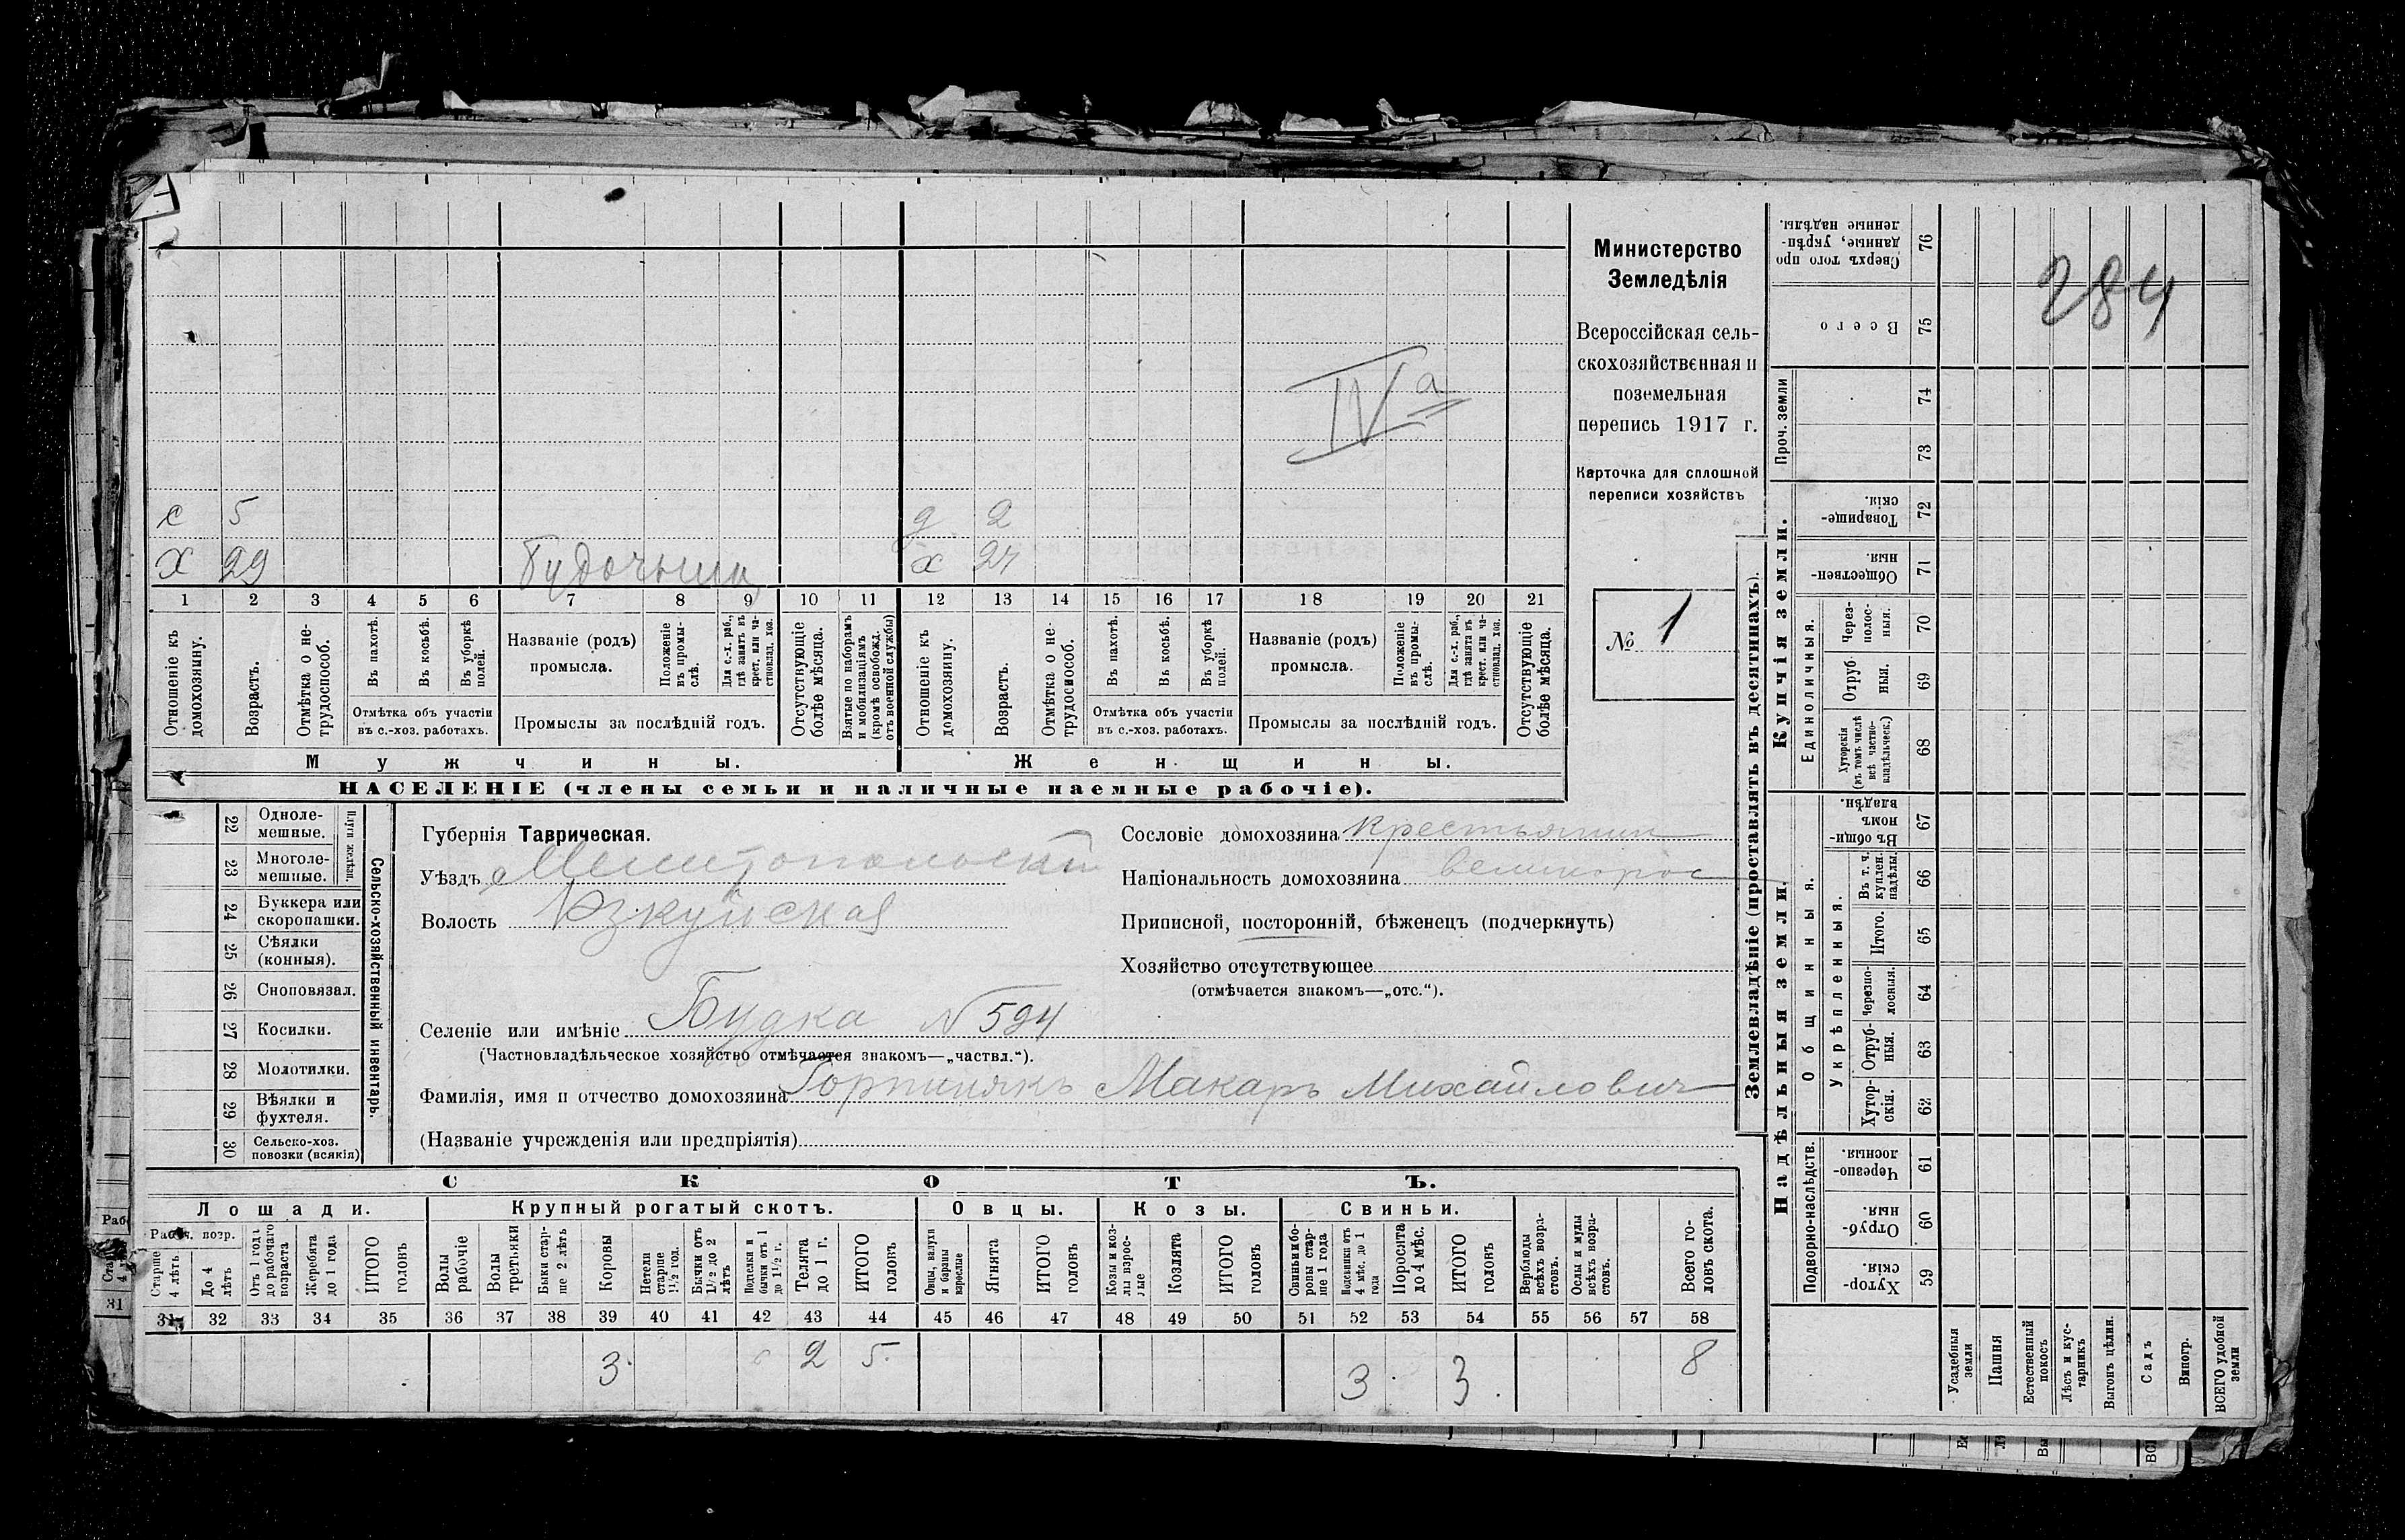 284
IV а
Министерство
Земледѣлія
Всероссійская сель-
скохозяйственная и
поземельная
перепись 1917 г.
Карточка для сплошной
переписи хозяйствъ
№ 1
с 5 д 2
х 29 х 24
1 2 3 4 5 6 7 8 9 10 11 12 13 14 15 16 17 18 19 20 21
Отношеніе къ домохозяину.
Возрастъ.
Отмѣтка о не-трудоспособ.
Въ пахотѣ.
Въ косьбѣ.
Въ уборкѣ полей.
Отмѣтка объ участіи
въ с.-хоз. работахъ.
Названіе (родъ)
промысла.
Положеніе въ промы-слѣ.
Для с.-х. раб., гдѣ занятъ въ крест. или ча-стновлад. хоз.
Промыслы за послѣдній годъ.
Отсутствующіе болѣе мѣсяца.
Взятые по наборамъ и мобилизаціямъ (кромѣ освобожд. отъ военной службы)
Отношеніе къ домохозяину.
Возрастъ.
Отмѣтка о не-трудоспособ.
Въ пахотѣ.
Въ косьбѣ.
Въ уборкѣ полей.
Отмѣтка объ участіи
въ с.-хоз. работахъ.
Названіе (родъ)
промысла.
Положеніе въ промы-слѣ.
Для с.-х. раб., гдѣ занята въ крест. или ча-стновлад. хоз.
Промыслы за послѣдній годъ.
Отсутствующіе болѣе мѣсяца.
Мужчины. Женщины.
НАСЕЛЕНІЕ (члены семьи и наличные наемные рабочіе).
Сельско-хозяйственный инвентарь.
Плуги желѣзн.
22 Одноле-
мешные.
23 Многоле-
мешные.
24 Буккера или
скоропашки.
25 Сѣялки
(конныя).
26 Сноповязал.
27 Косилки.
28 Молотилки.
29 Вѣялки и
фухтеля.
30 Сельско-хоз.
повозки (всякія)
Губернія Таврическая.
Уѣздъ Мелитопольский
Волость Ізкуйская
Селеніе или имѣніе Будка № 594
(Частновладѣльческое хозяйство отмѣчается знакомъ—„частвл.“).
Фамилія, имя и отчество домохозяина Горпинякъ Макаръ Михайлович
(Названіе учрежденія или предпріятія)
Сословіе домохозяина крестьянин
Національность домохозяина великорос
Приписной, посторонній, бѣженецъ (подчеркнуть)
Хозяйство отсутствующее
(отмѣчается знакомъ—„отс.“).
СКОТЪ.
Лошади. Крупный рогатый скотъ. Овцы. Козы. Свиньи.
Рабоч. возр.
Старше 4 лѣтъ.
До 4 лѣтъ
Отъ 1 года до рабочаго возраста
Жеребята до 1 года
ИТОГО головъ
Волы рабочіе
Волы третьяки
Быки стар-ше 2 лѣтъ
Коровы
Нетели старше 1½ год.
Бычки отъ 1½ до 2 лѣтъ
Подтелки и бычки отъ 1 до 1½ г.
Телята до 1 г.
ИТОГО головъ
Овцы, валухи и бараны взрослые
Ягнята
ИТОГО головъ
Козы и коз-лы взрос-лые
Козлята
ИТОГО головъ
Свиньи и бо-ровы стар-ше 1 года
Подсвинки отъ 4 мѣс. до 1 года
Поросята до 4 мѣс.
ИТОГО головъ
Верблюды всѣхъ возра-стовъ.
Ослы и мулы всѣхъ возра-стовъ.
Всего го-ловъ скота.
31 32 33 34 35 36 37 38 39 40 41 42 43 44 45 46 47 48 49 50 51 52 53 54 55 56 57 58
3 2 5 3 3 8
Землевладѣніе (проставлять въ десятинахъ).
Надѣльныя земли.
Купчія земли.
Проч. земли
Подворно-наслѣдств.
Общинныя.
Укрѣпленныя.
Единоличныя.
Сверхъ того про-
данные, укрѣп-
ленные надѣлы. 76
Всего 75
74
73
Товарище-
скія. 72
Обществен-
ныя. 71
Через-полос-ныя. 70
Отруб-ныя. 69
Хуторскія (въ томъ числѣ всѣ частно-владѣльческ.) 68
Въ общи-
номъ
владѣн. 67
Въ т. ч. куплен. надѣлы. 66
Итого. 65
Черезпо-лосныя. 64
Отруб-ныя. 63
Хутор-скія. 62
Черезпо-
лосныя. 61
Отруб-
ныя. 60
Хутор-
скія. 59
Усадебныя земли
Пашня
Естественный покосъ
Лѣсъ и кус-тарникъ
Выгонъ цѣлин.
Садъ
Виногр.
ВСЕГО удобной земли